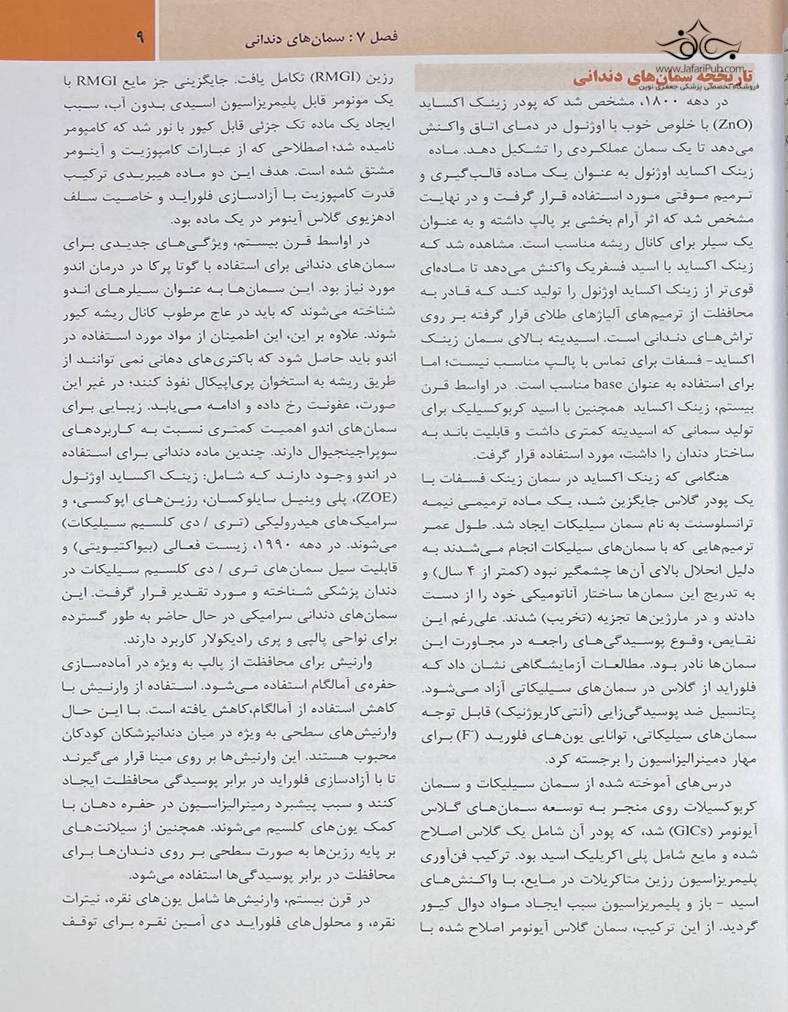 فصل ۷: سمان‌های دندانی
۹
www.JafariPub.com
فروشگاه تخصصی پزشکی جعفری نوین
تاریخچه سمان‌های دندانی
در دهه ۱۸۰۰، مشخص شد که پودر زینک اکساید
(ZnO) با خلوص خوب با اوژنول در دمای اتاق واکنش
می‌دهد تا یک سمان عملکردی را تشکیل دهد. ماده
زینک اکساید اوژنول به عنوان یک ماده قالب‌گیری و
ترمیم موقتی مورد استفاده قرار گرفت و در نهایت
مشخص شد که اثر آرام بخشی بر پالپ داشته و به عنوان
یک سیلر برای کانال ریشه مناسب است. مشاهده شد که
زینک اکساید با اسید فسفریک واکنش می‌دهد تا ماده‌ای
قوی‌تر از زینک اکساید اوژنول را تولید کند که قادر به
محافظت از ترمیم‌های آلیاژهای طلای قرار گرفته بر روی
تراش‌های دندانی است. اسیدیته بالای سمان زینک
اکساید- فسفات برای تماس با پالپ مناسب نیست؛ اما
برای استفاده به عنوان base مناسب است. در اواسط قرن
بیستم، زینک اکساید همچنین با اسید کربوکسیلیک برای
تولید سمانی که اسیدیته کمتری داشت و قابلیت باند به
ساختار دندان را داشت، مورد استفاده قرار گرفت.
هنگامی که زینک اکساید در سمان زینک فسفات با
یک پودر گلاس جایگزین شد، یک ماده ترمیمی نیمه
ترانسلوسنت به نام سمان سیلیکات ایجاد شد. طول عمر
ترمیم‌هایی که با سمان‌های سیلیکات انجام می‌شدند به
دلیل انحلال بالای آن‌ها چشمگیر نبود (کمتر از ۴ سال) و
به تدریج این سمان‌ها ساختار آناتومیکی خود را از دست
دادند و در مارژین‌ها تجزیه (تخریب) شدند. علی‌رغم این
نقایص، وقوع پوسیدگی‌های راجعه در مجاورت این
سمان‌ها نادر بود. مطالعات آزمایشگاهی نشان داد که
فلوراید از گلاس در سمان‌های سیلیکاتی آزاد می‌شود.
پتانسیل ضد پوسیدگی‌زایی (آنتی‌کاریوژنیک) قابل توجه
سمان‌های سیلیکاتی، توانایی یون‌های فلورید (F⁻) برای
مهار دمینرالیزاسیون را برجسته کرد.
درس‌های آموخته شده از سمان سیلیکات و سمان
کربوکسیلات روی منجر به توسعه سمان‌های گلاس
آیونومر (GICs) شد، که پودر آن شامل یک گلاس اصلاح
شده و مایع شامل پلی اکریلیک اسید بود. ترکیب فن‌آوری
پلیمریزاسیون رزین متاکریلات در مایع، با واکنش‌های
اسید - باز و پلیمریزاسیون سبب ایجاد مواد دوال کیور
گردید. از این ترکیب، سمان گلاس آیونومر اصلاح شده با
رزین (RMGI) تکامل یافت. جایگزینی جز مایع RMGI با
یک مونومر قابل پلیمریزاسیون اسیدی بدون آب، سبب
ایجاد یک ماده تک جزئی قابل کیور با نور شد که کامپومر
نامیده شد؛ اصطلاحی که از عبارات کامپوزیت و آینومر
مشتق شده است. هدف این دو ماده هیبریدی ترکیب
قدرت کامپوزیت با آزادسازی فلوراید و خاصیت سلف
ادهزیوی گلاس آینومر در یک ماده بود.
در اواسط قرن بیستم، ویژگی‌های جدیدی برای
سمان‌های دندانی برای استفاده با گوتا پرکا در درمان اندو
مورد نیاز بود. این سمان‌ها به عنوان سیلرهای اندو
شناخته می‌شوند که باید در عاج مرطوب کانال ریشه کیور
شوند. علاوه بر این، این اطمینان از مواد مورد استفاده در
اندو باید حاصل شود که باکتری‌های دهانی نمی توانند از
طریق ریشه به استخوان پری‌اپیکال نفوذ کنند؛ در غیر این
صورت، عفونت رخ داده و ادامه می‌یابد. زیبایی برای
سمان‌های اندو اهمیت کمتری نسبت به کاربردهای
سوپراجینجیوال دارند. چندین ماده دندانی برای استفاده
در اندو وجود دارند که شامل: زینک اکساید اوژنول
(ZOE)، پلی وینیل سایلوکسان، رزین‌های اپوکسی، و
سرامیک‌های هیدرولیکی (تری / دی کلسیم سیلیکات)
می‌شوند. در دهه ۱۹۹۰، زیست فعالی (بیواکتیویتی) و
قابلیت سیل سمان‌های تری / دی کلسیم سیلیکات در
دندان پزشکی شناخته و مورد تقدیر قرار گرفت. این
سمان‌های دندانی سرامیکی در حال حاضر به طور گسترده
برای نواحی پالپی و پری رادیکولار کاربرد دارند.
وارنیش برای محافظت از پالپ به ویژه در آماده‌سازی
حفره‌ی آمالگام استفاده می‌شود. استفاده از وارنیش با
کاهش استفاده از آمالگام،کاهش یافته است. با این حال
وارنیش‌های سطحی به ویژه در میان دندانپزشکان کودکان
محبوب هستند. این وارنیش‌ها بر روی مینا قرار می‌گیرند
تا با آزادسازی فلوراید در برابر پوسیدگی محافظت ایجاد
کنند و سبب پیشبرد رمینرالیزاسیون در حفره دهان با
کمک یون‌های کلسیم می‌شوند. همچنین از سیلانت‌های
بر پایه رزین‌ها به صورت سطحی بر روی دندان‌ها برای
محافظت در برابر پوسیدگی‌ها استفاده می‌شود.
در قرن بیستم، وارنیش‌ها شامل یون‌های نقره، نیترات
نقره، و محلول‌های فلوراید دی آمین نقره برای توقف